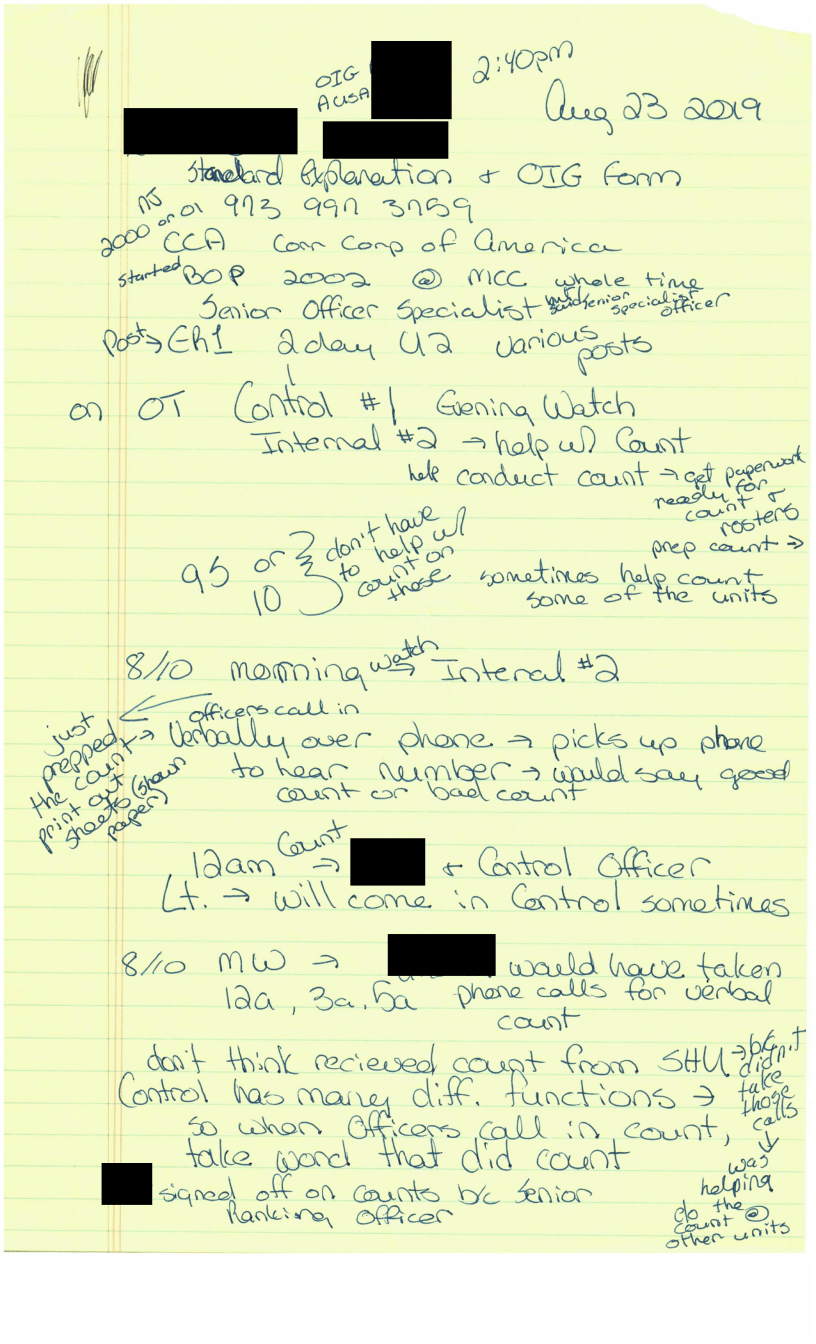 OIG
AUSA
2:40pm
Aug 23 2019
Standard Explanation + OIG Form
NJ
2000 or 01 973 997 3759
CCA Corr Corp of America
started BOP 2002 @ MCC whole time
Senior Officer Specialist senior specialist officer
Post → Ch1 2 day U2 various posts
on OT Control #1 Evening Watch
Internal #2 → help w/ Count
help conduct count → get paperwork
ready for
count +
rosters
prep count →
95 or 10 } don't have
to help w/
count on
these
sometimes help count
some of the units
8/10 morning watch → Internal #2
officers call in
→ Verbally over phone → picks up phone
to hear number → would say good
count or bad count
just
prepped
the count
print out
sheets (shown
paper)
12am Count → + Control Officer
Lt. → will come in Control sometimes
8/10 MW → would have taken
12a, 3a, 5a phone calls for verbal
count
don't think recieved count from SHU → b/c didn't
take
those
calls
↓
was
helping
do the
count @
other units
Control has many diff. functions →
so when Officers call in count,
take word that did count
signed off on counts b/c Senior
Ranking Officer